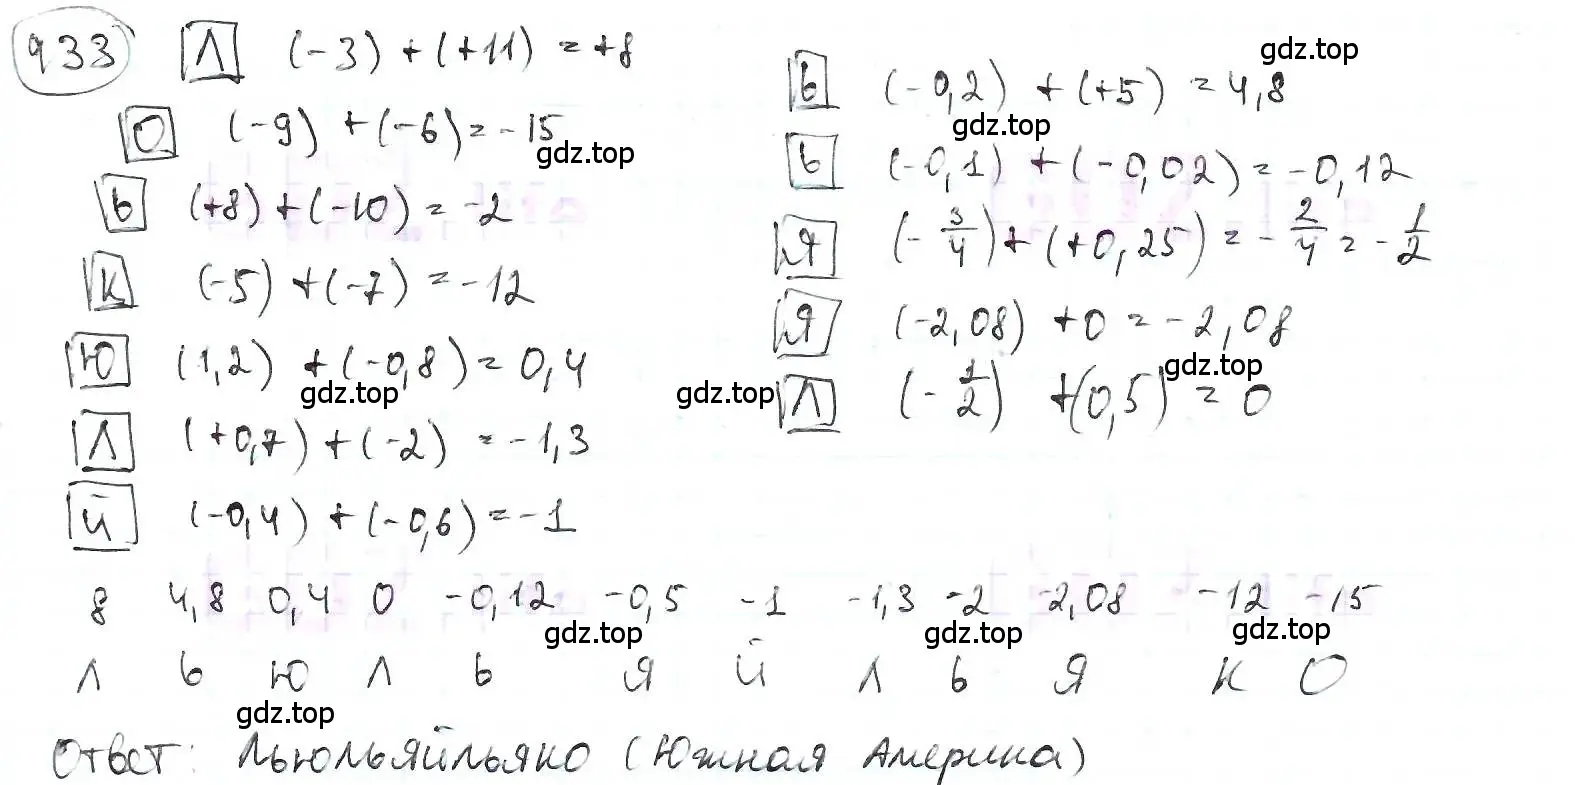 933 Л (-3) + (+11) = +8
О (-9) + (-6) = -15
gdz.top
Ь (+8) + (-10) = -2
К (-5) + (-7) = -12
Ю (1,2) + (-0,8) = 0,4
gdz.top
Л (+0,7) + (-2) = -1,3
Й (-0,4) + (-0,6) = -1
gdz.top
Ь (-0,2) + (+5) = 4,8
gdz.top
Ь (-0,1) + (-0,02) = -0,12
Я (-3/4) + (+0,25) = -2/4 = -1/2
Я (-2,08) + 0 = -2,08
gdz.top
gdz.top Л (-1/2) + (0,5) = 0
8 4,8 0,4 0 -0,12 -0,5 -1 -1,3 -2 -2,08 -12 -15
gdz.top gdz.top gdz.top
Л Ь Ю Л Ь Я Й Л Ь Я К О
gdz.top
Ответ: Льюльяйльяко (Южная Америка)